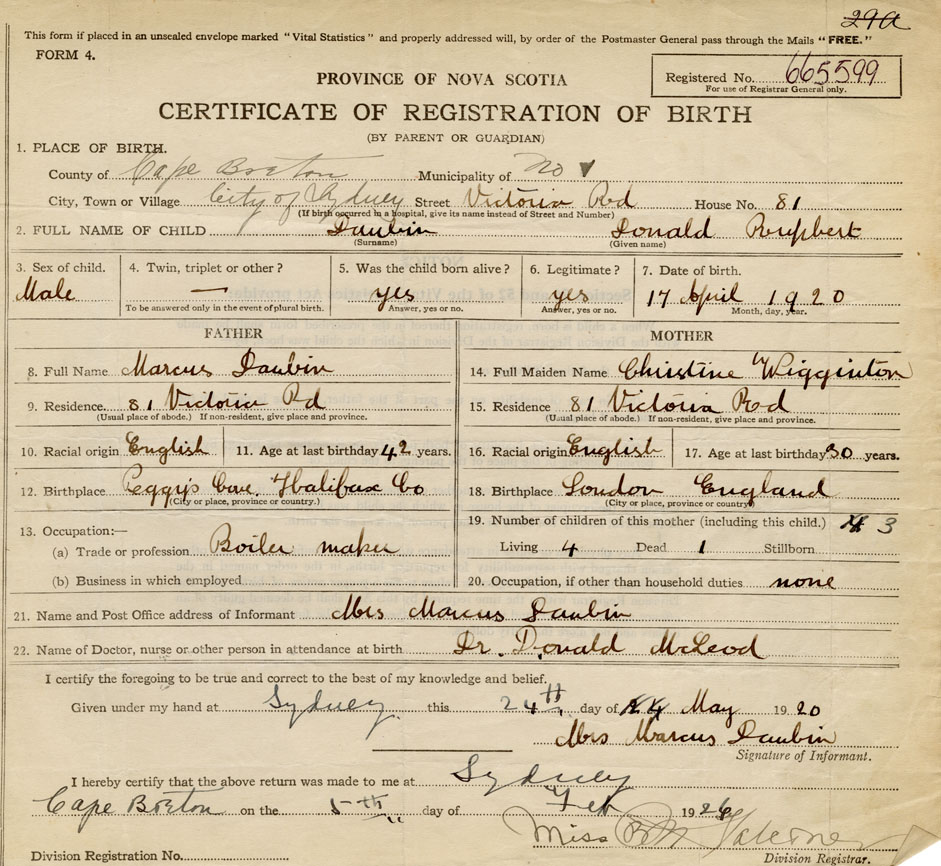 29a
This form if placed in an unsealed envelope marked "Vital Statistics" and properly addressed will, by order of the Postmaster General pass through the Mails "FREE."
FORM 4.
PROVINCE OF NOVA SCOTIA
Registered No. 665599
For use of Registrar General only.
CERTIFICATE OF REGISTRATION OF BIRTH
(BY PARENT OR GUARDIAN)
1. PLACE OF BIRTH.
County of Cape Breton Municipality of No
City, Town or Village City of Sydney Street Victoria Rd House No. 81
(If birth occurred in a hospital, give its name instead of Street and Number)
2. FULL NAME OF CHILD Daubin Donald
(Surname) (Given name)
3. Sex of child. 4. Twin, triplet or other? 5. Was the child born alive? 6. Legitimate? 7. Date of birth.
Male — yes yes 17 April 1920
To be answered only in the event of plural birth. Answer, yes or no. Answer, yes or no. Month, day, year.
FATHER MOTHER
8. Full Name Marcus Daubin 14. Full Maiden Name Christine Wigginton
9. Residence 81 Victoria Rd 15. Residence 81 Victoria Rd
(Usual place of abode.) If non-resident, give place and province. (Usual place of abode.) If non-resident, give place and province.
10. Racial origin English 11. Age at last birthday 42 years. 16. Racial origin English 17. Age at last birthday 30 years.
12. Birthplace Peggy's Cove. Halifax Co 18. Birthplace London England
(City or place, province or country.) (City or place, province or country)
13. Occupation:— 19. Number of children of this mother (including this child.) 3
(a) Trade or profession Boiler maker Living 4 Dead 1 Stillborn
(b) Business in which employed 20. Occupation, if other than household duties none
21. Name and Post Office address of Informant Mrs Marcus Daubin
22. Name of Doctor, nurse or other person in attendance at birth Dr. Donald McLeod
I certify the foregoing to be true and correct to the best of my knowledge and belief.
Given under my hand at Sydney this 24th day of May 1920
Mrs Marcus Daubin
Signature of Informant.
I hereby certify that the above return was made to me at Sydney
Cape Breton on the 5th day of Feb 1926
Miss
Division Registration No. Division Registrar.